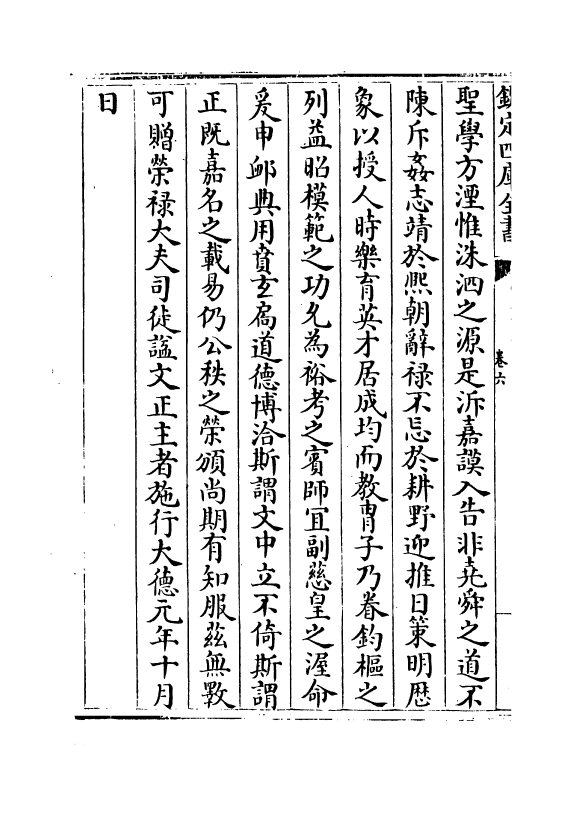 欽定四庫全書
卷六
聖學方湮惟洙泗之源是泝嘉謨入告非堯舜之道不
陳斥姦志靖於熙朝辭禄不忘於耕野迎推日策明歴
象以授人時樂育英才居成均而教胄子乃眷鈞樞之
列益昭模範之功允為裕考之賓師宜副慈皇之渥命
爰申邮典用賁玄扃道德博洽斯謂文中立不倚斯謂
正既嘉名之載易仍公秩之榮頒尚期有知服兹無斁
可贈榮禄大夫司徒諡文正主者施行大德元年十月
日